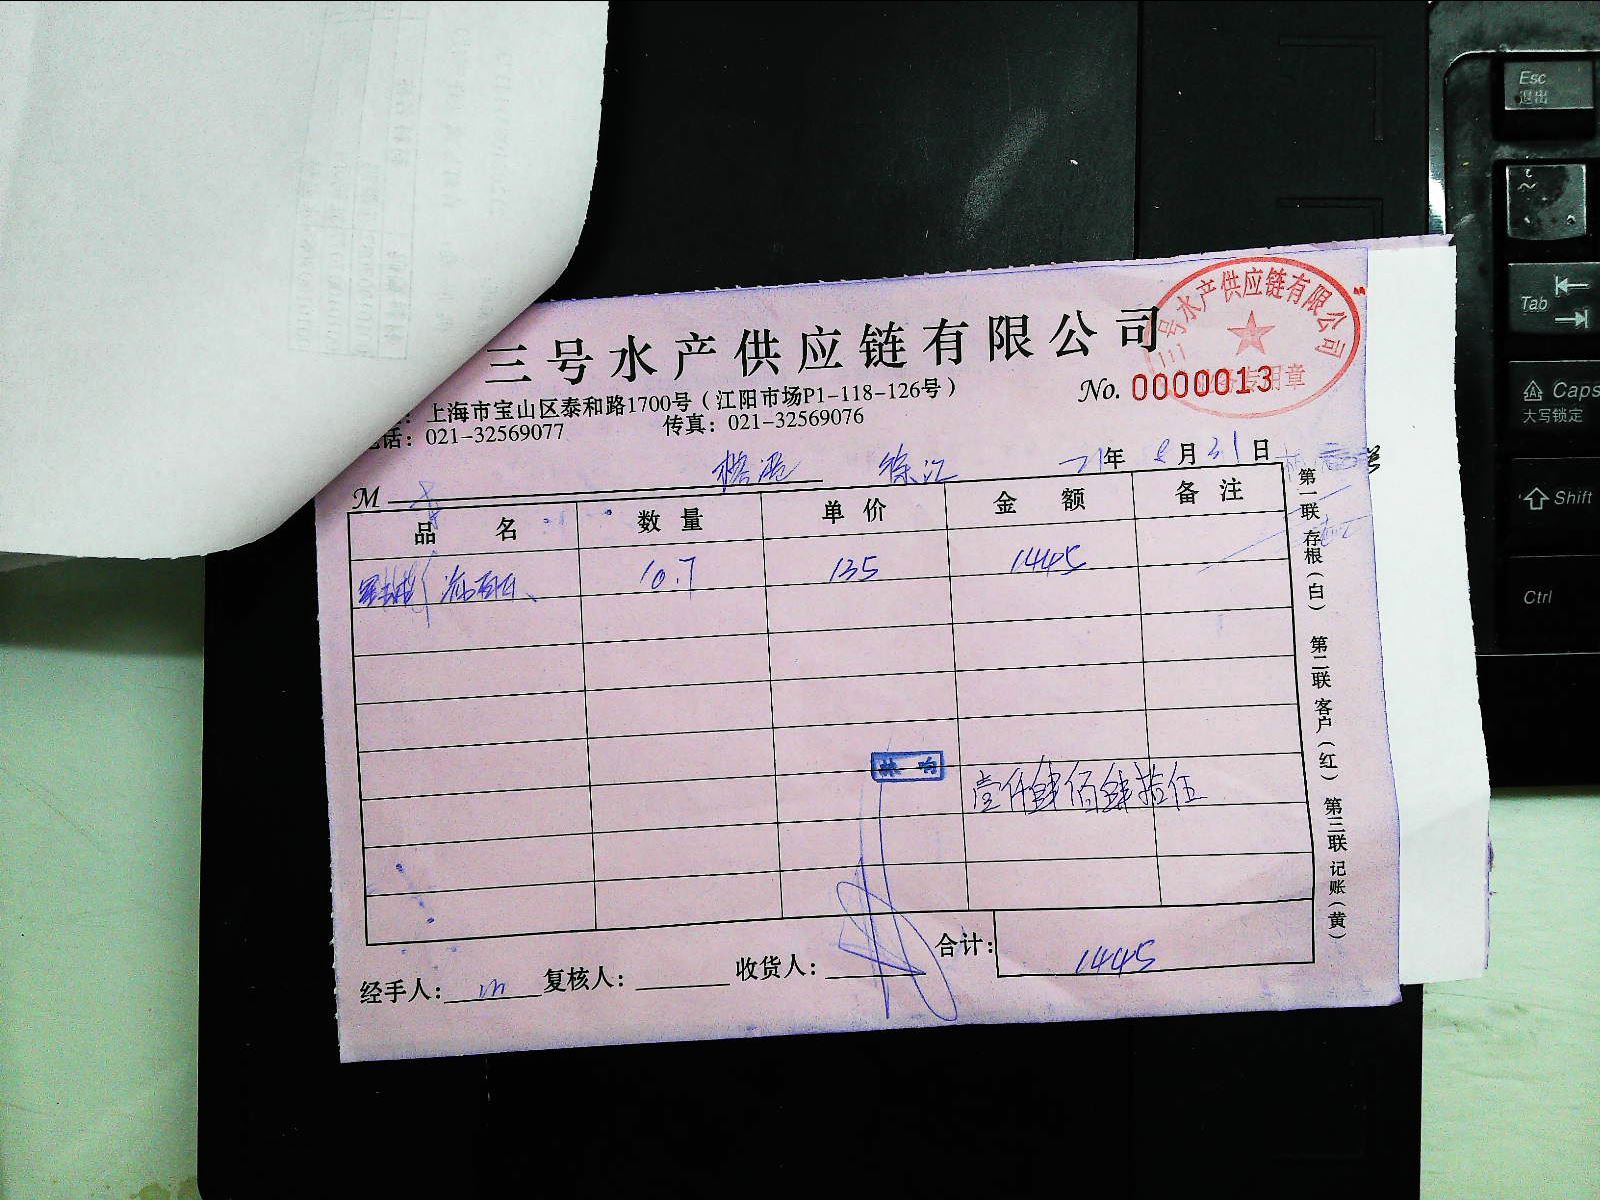 三号水产供应链有限公司
三号水产供应链有限公司
专用章
上海市宝山区泰和路1700号（江阳市场P1-118-126号）
No. 0000013
话：021-32569077 传真：021-32569076
徐汇 21年 8月31日
M
品名 数量 单价 金额 备注
10.7 135 1445
壹仟肆佰肆拾伍
合计：1445
经手人： 复核人： 收货人：
第一联 存根（白） 第二联 客户（红） 第三联 记账（黄）
Esc
退出
~
Tab
Caps
大写锁定
Shift
Ctrl